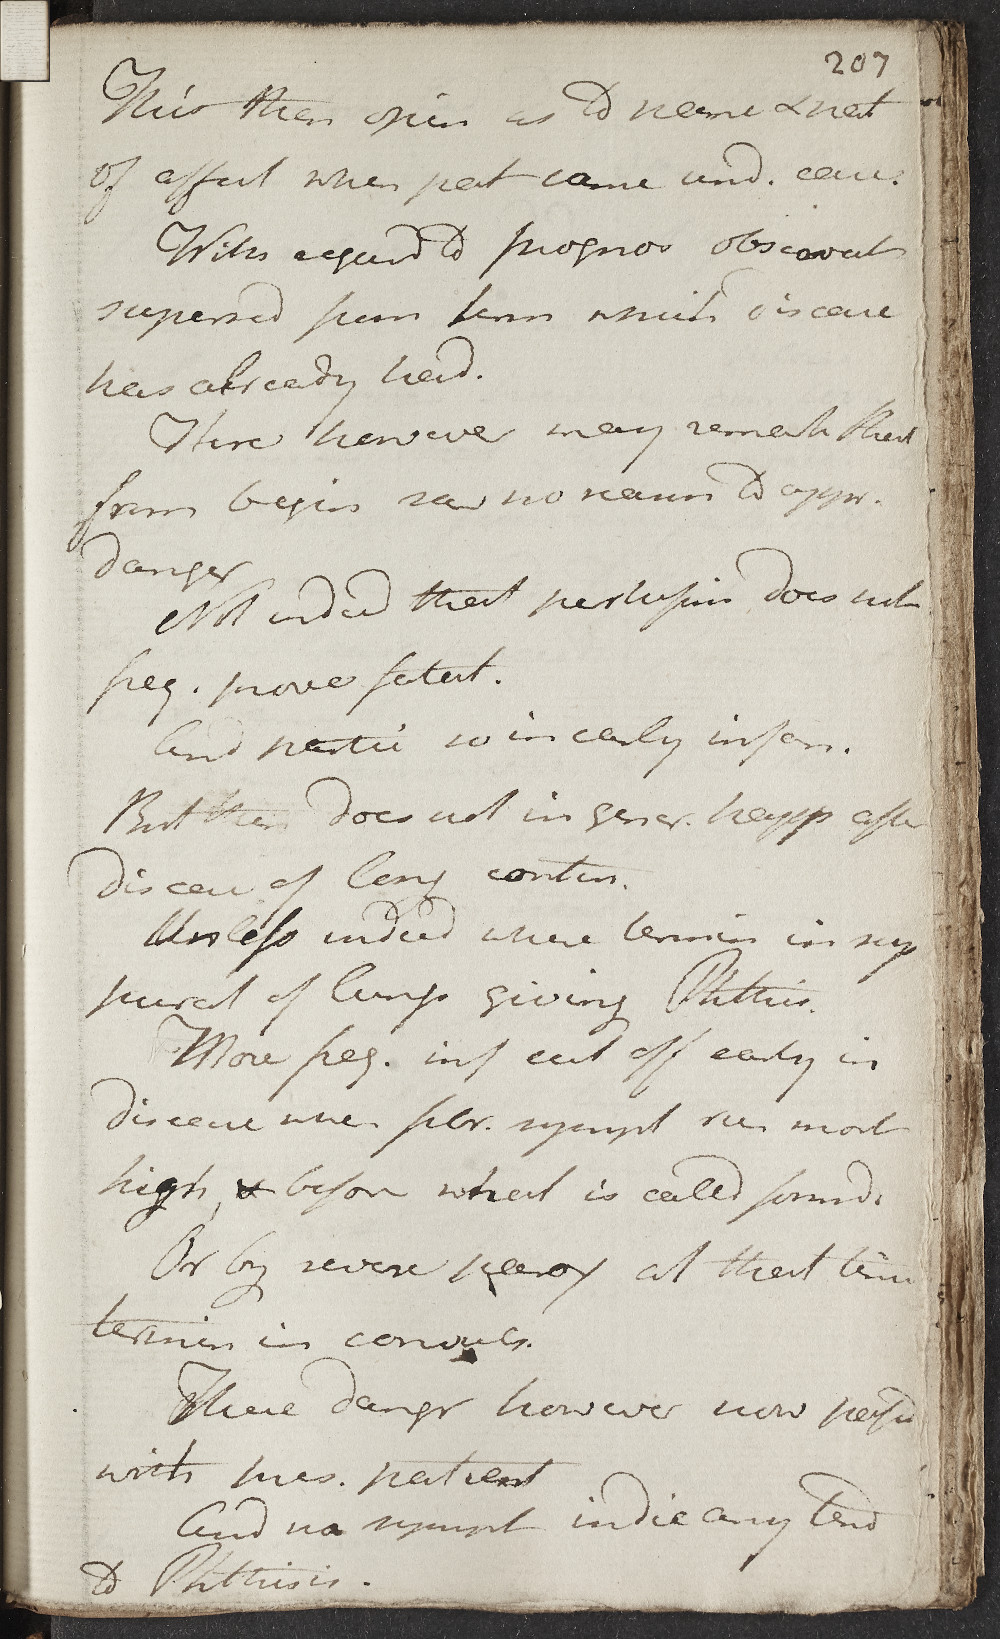 207
This then opin as to name & nat
of affect when pat came und. care.
With regard to prognos observat
supersed from term which disease
has already had.
Here however may remark that
from begin saw no reason to appr.
danger
Not indeed that pertussis does not
freq. prove fatal.
And partic so in early infan.
But then does not in gener. happ after
disease of long contin.
Unless indeed where termin in sup
purat of lungs giving Phthisis.
More freq. inf cut off early in
disease when febr. sympt run most
high, & before what is called formd.
Or by severe parox at that time
termin in convuls.
These dangr however now past
with pres. patient
And no sympt indic any tend
to Phthisis.